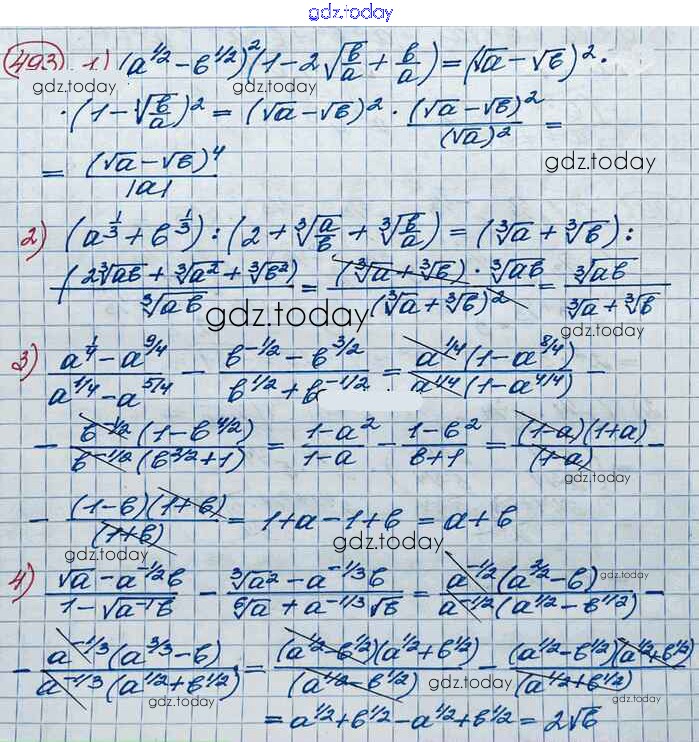 gdz.today
493 1) (a^{1/2} - b^{1/2})^2 (1 - 2√(b/a) + b/a) = (√a - √b)^2 ·
gdz.today gdz.today
· (1 - √(b/a))^2 = (√a - √b)^2 · (√a - √b)^2/(√a)^2 =
gdz.today
= (√a - √b)^4/|a|
2) (a^{1/3} + b^{1/3}) : (2 + ∛(a/b) + ∛(b/a)) = (∛a + ∛b) :
(2∛ab + ∛a^2 + ∛b^2)/∛ab = (∛a + ∛b) · ∛ab/(∛a + ∛b)^2 = ∛ab/(∛a + ∛b)
gdz.today
gdz.today
3) (a^{1/4} - a^{9/4})/(a^{1/4} - a^{5/4}) - (b^{-1/2} - b^{3/2})/(b^{1/2} + b^{-1/2}) = a^{1/4}(1 - a^{8/4})/a^{1/4}(1 - a^{4/4}) -
- b^{-1/2}(1 - b^{4/2})/b^{-1/2}(b^{2/2} + 1) = (1 - a^2)/(1 - a) - (1 - b^2)/(b + 1) = (1 - a)(1 + a)/(1 - a) -
gdz.today
- (1 - b)(1 + b)/(1 + b) = 1 + a - 1 + b = a + b
gdz.today gdz.today
4) (√a - a^{-1/2}b)/(1 - √(a^{-1}b)) - (∛a^2 - a^{-1/3}b)/(⁶√a + a^{-1/3}√b) = a^{-1/2}(a^{2/2} - b)/a^{-1/2}(a^{1/2} - b^{1/2}) -
gdz.today
- a^{-1/3}(a^{3/3} - b)/a^{-1/3}(a^{1/2} + b^{1/2}) = (a^{1/2} - b^{1/2})(a^{1/2} + b^{1/2})/(a^{1/2} - b^{1/2}) - (a^{1/2} - b^{1/2})(a^{1/2} + b^{1/2})/(a^{1/2} + b^{1/2})
gdz.today gdz.today
gdz.today
= a^{1/2} + b^{1/2} - a^{1/2} + b^{1/2} = 2√b